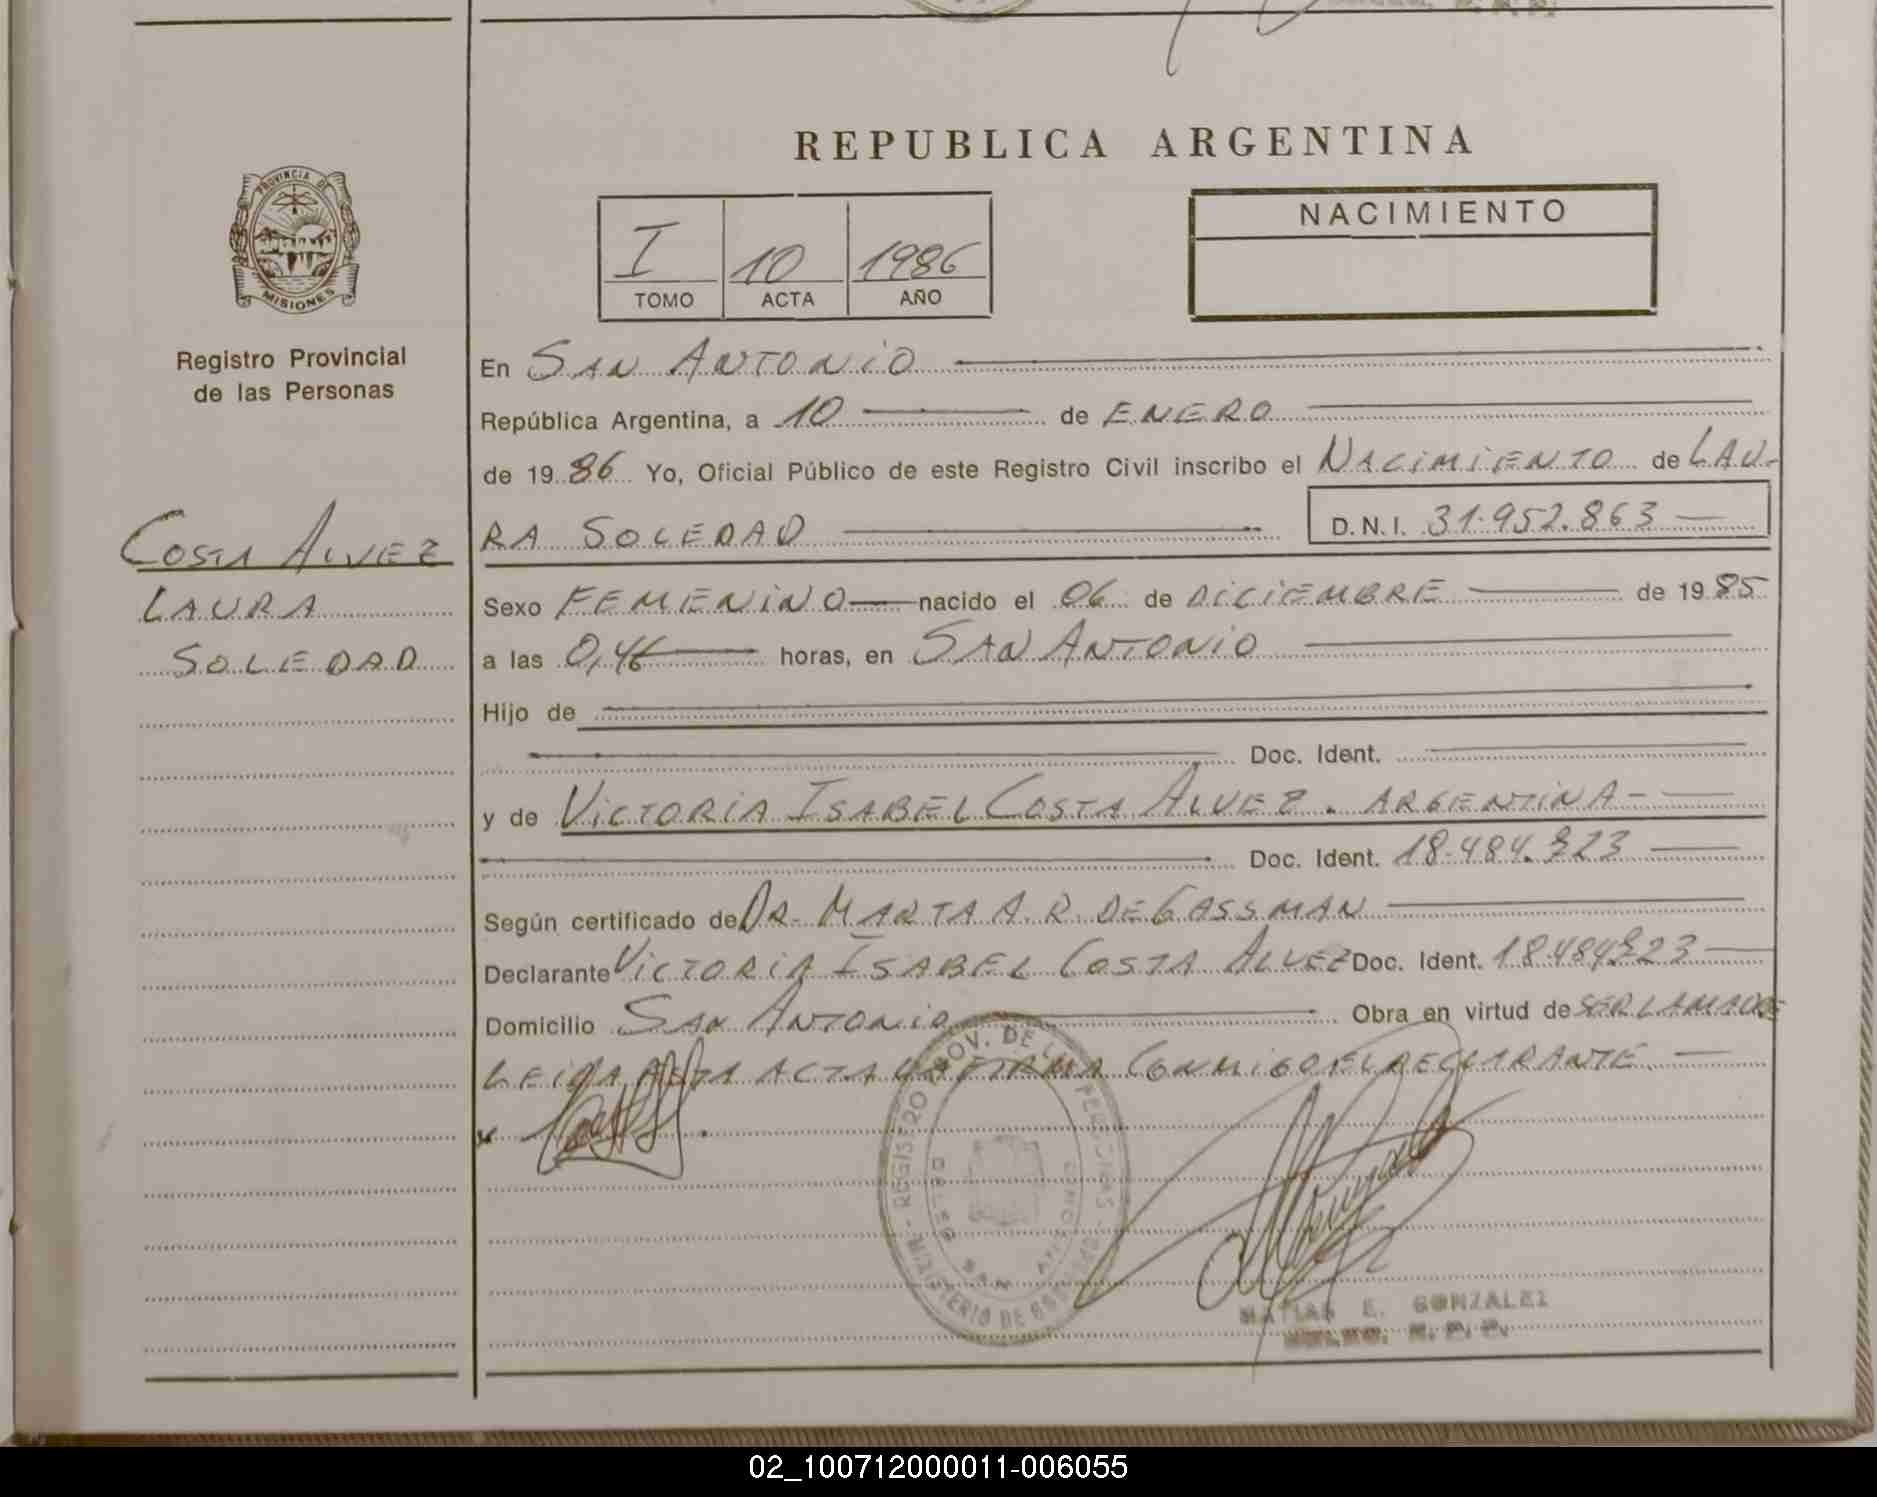 REPUBLICA ARGENTINA
PROVINCIA DE
MISIONES
Registro Provincial
de las Personas
I
10
1986
TOMO
ACTA
AÑO
NACIMIENTO
En SAN ANTONIO
República Argentina, a 10 de ENERO
de 1986 Yo, Oficial Público de este Registro Civil inscribo el NACIMIENTO de LAU-
RA SOLEDAD D.N.I. 31.952.863
COSTA ALVEZ
LAURA
SOLEDAD
Sexo FEMENINO nacido el 06 de DICIEMBRE de 1985
a las 0,46 horas, en SAN ANTONIO
Hijo de
Doc. Ident.
y de VICTORIA ISABEL COSTA ALVEZ. ARGENTINA-
Doc. Ident. 18.484.323
Según certificado de DR. MARTA A R. DE GASSMAN
Declarante VICTORIA ISABEL COSTA ALVEZ Doc. Ident. 18.484.323
Domicilio SAN ANTONIO Obra en virtud de SER LA MADRE
LEIDA ESTA ACTA LA FIRMA CONMIGO EL DECLARANTE
x
REGISTRO PROV. DE LAS PERSONAS
MINISTERIO DE GOBIERNO
SAN ANTONIO
MATIAS E. GONZALEZ
02_100712000011-006055